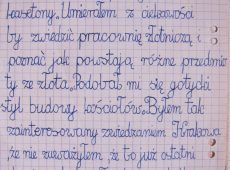 kasetony„Umierałem z ciekawości
by zwiedzić pracownię złotniczą i
poznać jak powstają różne przedmio
ty ze złota„Podobał mi się gotycki
styl budowy kościołów„Byłem tak
zainteresowany zwiedzaniem Krakowa
że nie zauważyłem, że to już ostatni